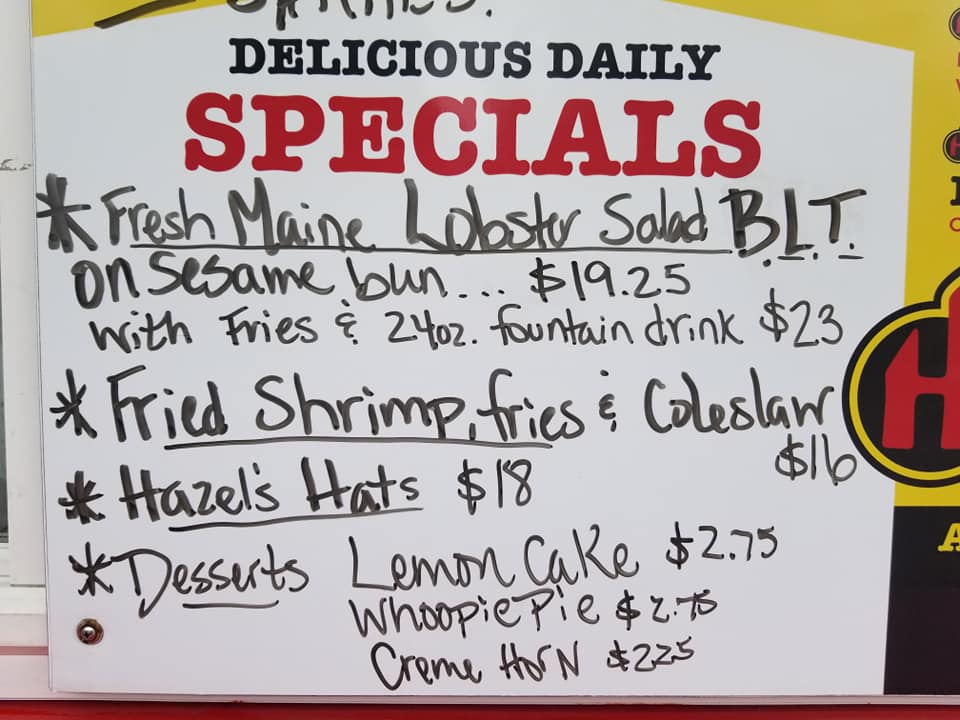 DELICIOUS DAILY
SPECIALS
* Fresh Maine Lobster Salad B.L.T.
on Sesame bun... $19.25
with Fries & 24oz. fountain drink $23
* Fried Shrimp, fries & Coleslaw
$16
* Hazel's Hats $18
* Desserts Lemon Cake $2.75
Whoopie Pie $2.75
Creme Horn $2.25
H
A